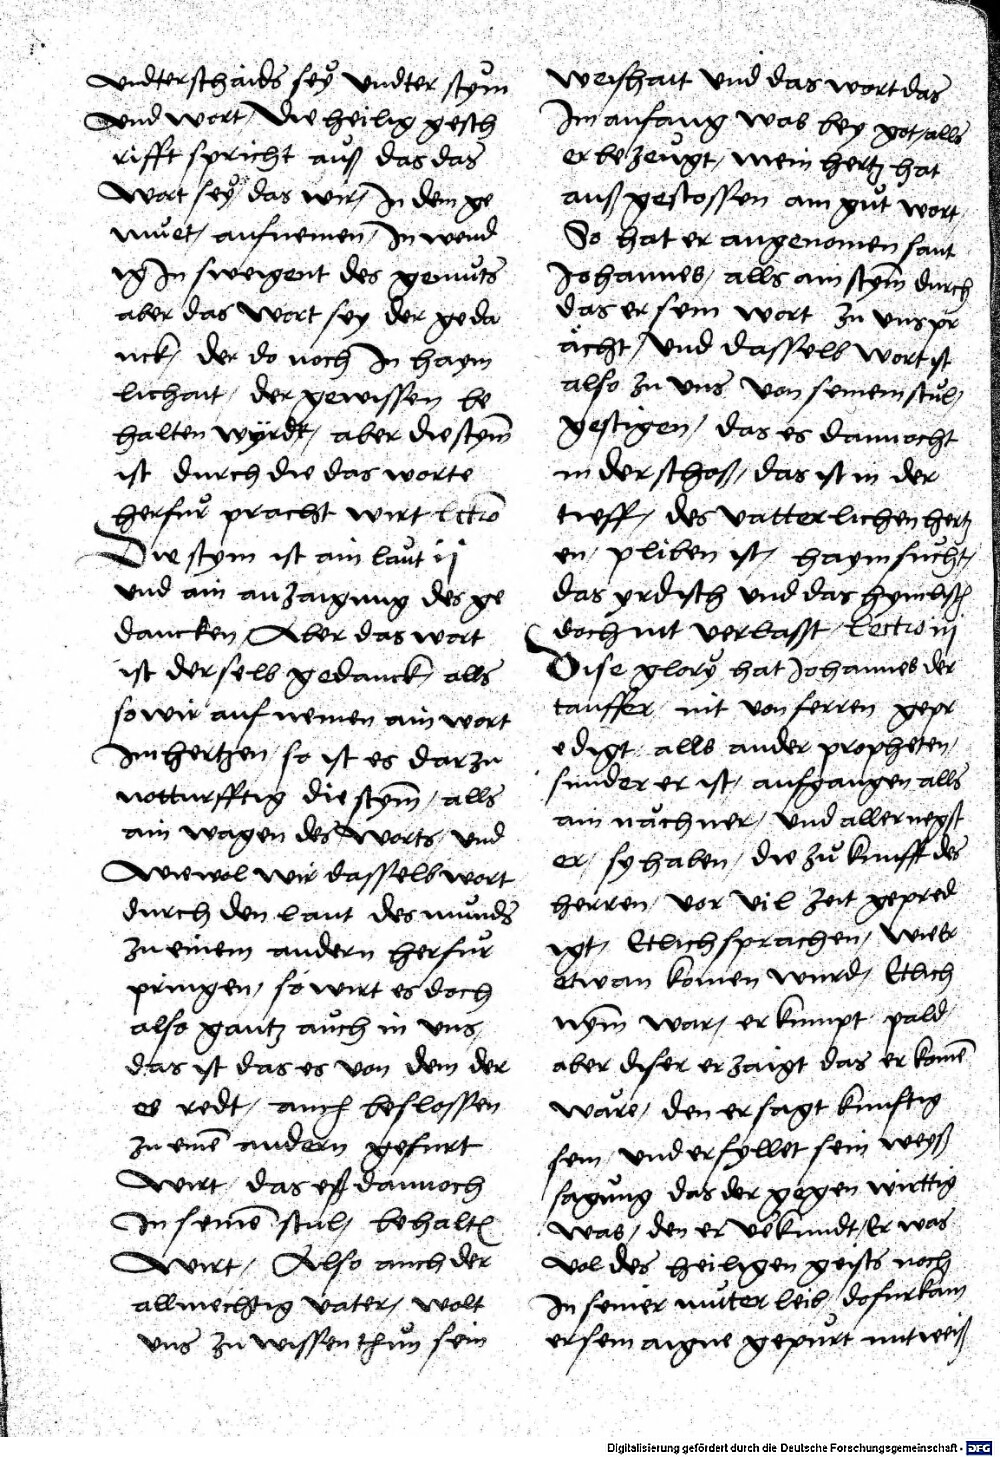 undterschaids sey undter stym
und wort / Die heilig gesch
rifft spricht auß das das
wort sey das wir / In dem ge
muet / aufnemen / In wend
ig In sweigent des gemuts
aber das wort sey der geda
nck / der do noch In haym
lichait / der gewissen be
halten wÿrdt / aber die stym̄
ist durch die das worte
herfur pracht wirt lectio
Die stym ist ain laut ij
und ain anzaigung des ge
dancken / Aber das wort
ist derselb gedanck / alls
so wir aufnemen ain wort
Im hertzen / so ist es darzu
notturfftig die stym̄ / alls
ain wagen des worts / und
wiewol wir dasselb wort
durch den laut des munds
zu einem andern herfur
pringen / so wirt es doch
also gantz auch in uns /
das ist das es von dem der
es redt / auch beslossen
zu eine͂ andern gefurt
wirt / das es dannoch
In seine͂ stul / behalte͂
wirt / Also auch der
allmechtig vater / wolt
uns zu wissen thun sein
weishait und das wort das
Im anfang was bey got / alls
er bezeugt / mein hertz hat
auß gestossen ain gut wort /
So hat er angenomen sant
Johannes / alls ain stym̄ durch
das er sein wort zu uns pr
ächt / und dasselb wort ist
also zu uns von seinem stul /
gestigen / das es dannocht
in der schoß / das ist in der
tieff / des vatterlichen hertz
en / pliben ist / haymsucht /
das yrdisch und das hymlisch
doch nit verlasst / Lectio iij
Dise glory hat Johannes der
tauffer / nit von ferren gepr
edigt / alls ander propheten /
sunder er ist / aufgangen alls
ain nächner / und aller negst
er / sy haben / die zukunfft des
herren / vor vil zeit gepred
igt / Etlich sprachen / wie er
etwan komen wurd / Etlich
nym̄ war / er kumpt pald
aber diser erzaigt das er kome͂
wäre / den er sagt kunftig
sein / und erfyllet sein weyß
sagung das der gegenwirttig
was / den er ve͂kundt / Er was
vol des heiligen geists noch
In seiner muter leib / dofur kam
er sein aigne gepurt mit weiß